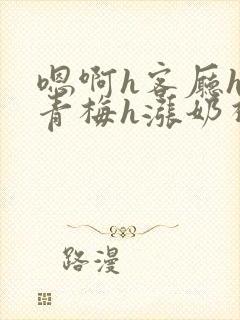 嗯啊h客厅h
青梅h涨奶
路漫